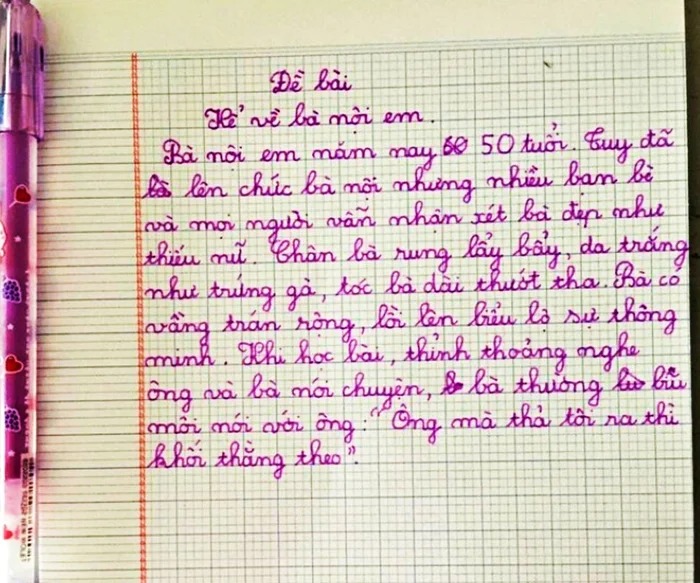 Đề bài
Kể về bà nội em.
Bà nội em năm nay 60 50 tuổi. Tuy đã
là lên chức bà nội nhưng nhiều bạn bè
và mọi người vẫn nhận xét bà đẹp như
thiếu nữ. Chân bà rung lẩy bẩy, da trắng
như trứng gà, tóc bà dài thướt tha. Bà có
vầng trán rộng, lồi lên biểu lộ sự thông
minh. Khi học bài, thỉnh thoảng nghe
ông và bà nói chuyện, bà thường bĩu
môi nói với ông: "Ông mà thả tôi ra thì
khối thằng theo".